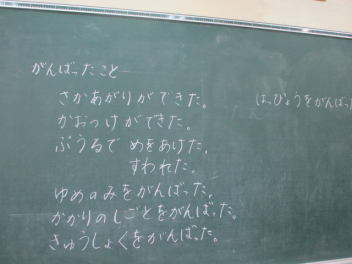 がんばったこと
さかあがりができた。
かおつけができた。
ぷうるでめをあけた。
すわれた。
ゆめのみをがんばった。
かかりのしごとをがんばった。
きゅうしょくをがんばった。
はっぴょうをがんばっ